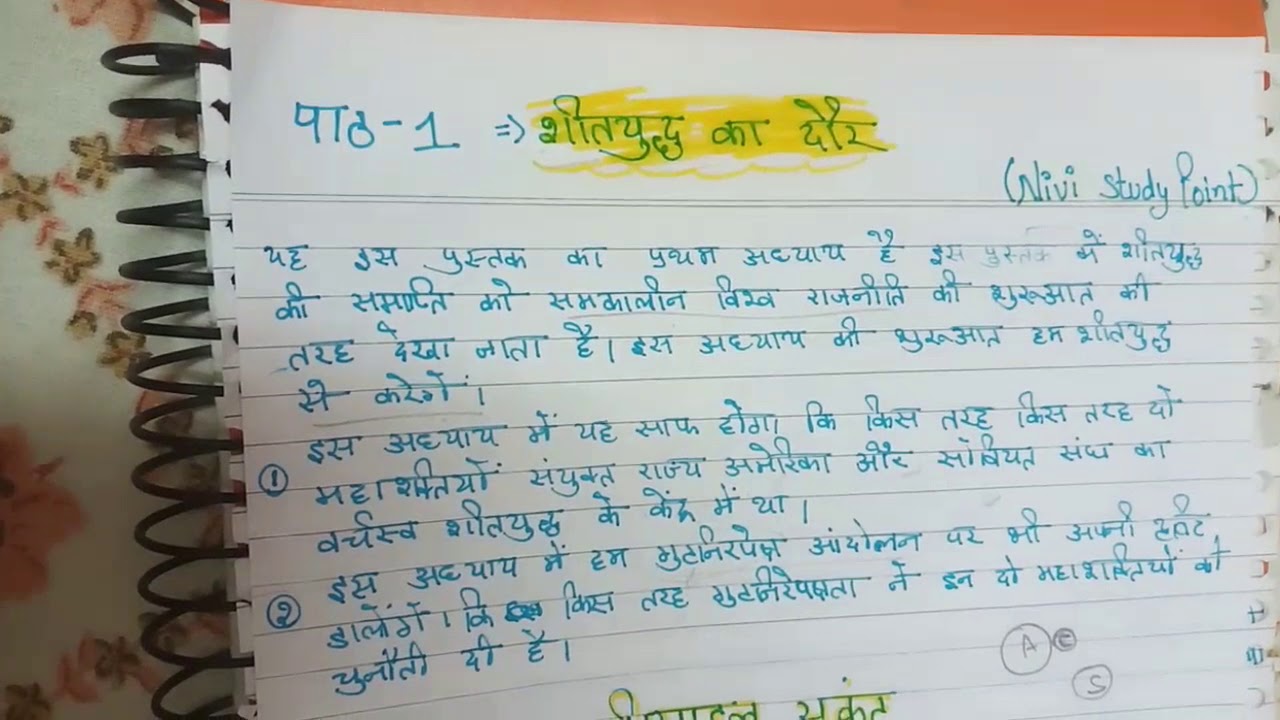 पाठ-1 => शीतयुद्ध का दौर
(Nivi Study Point)
यह इस पुस्तक का प्रथम अध्याय है इस पुस्तक में शीतयुद्ध
की समाप्ति को समकालीन विश्व राजनीति की शुरूआत की
तरह देखा जाता है। इस अध्याय की शुरूआत हम शीतयुद्ध
से करेगें।
① इस अध्याय में यह साफ होगा कि किस तरह किस तरह दो
महाशक्तियों संयुक्त राज्य अमेरिका और सोवियत संघ का
वर्चस्व शीतयुद्ध के केंद्र में था।
② इस अध्याय में हम गुटनिरपेक्ष आंदोलन पर भी अपनी
डालेंगें। कि किस तरह गुटनिरेपक्षता ने इन दो महाशक्तियों को
चुनौती दी है।
A C
S